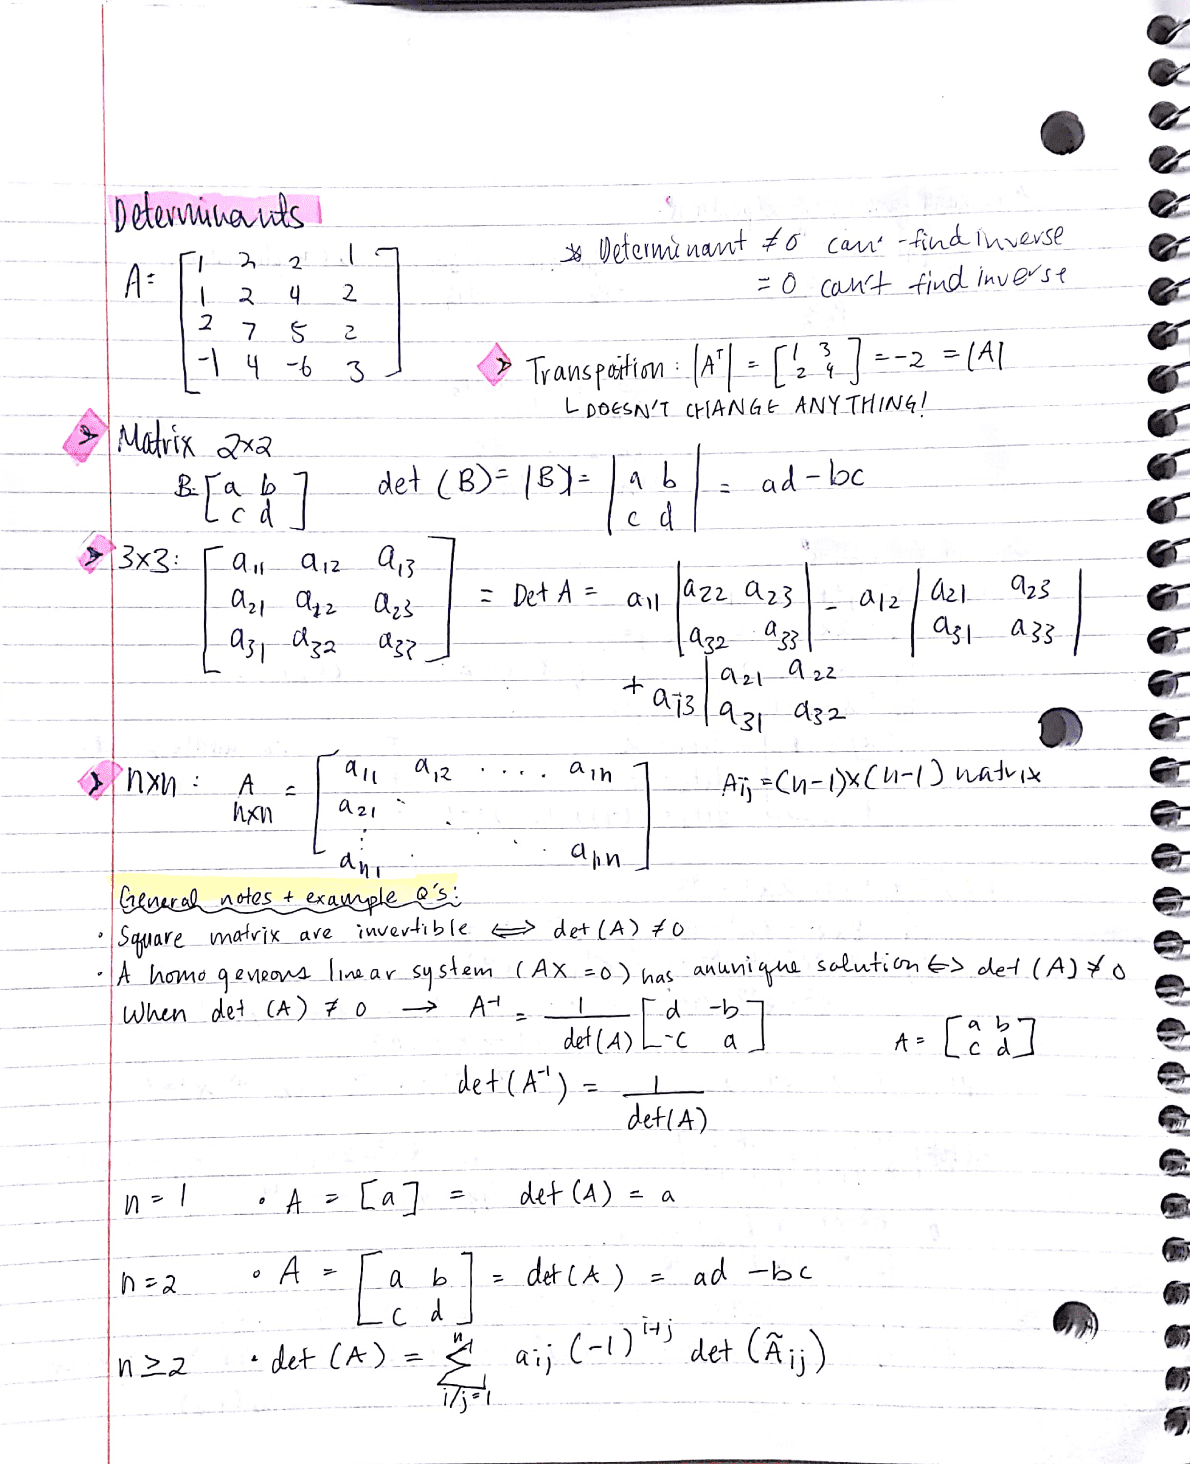 Determinants
A = [1 2 2 1
1 2 4 2
2 7 5 2
-1 4 -6 3]
* Determinant ≠ 0 can -find inverse
= 0 can't find inverse
Transposition : |Aᵀ| = [1 3
2 4] = -2 = |A|
↳ DOESN'T CHANGE ANYTHING!
Matrix 2x2
B = [a b
c d] det (B) = |B| = |a b
c d| = ad - bc
3x3: [a₁₁ a₁₂ a₁₃
a₂₁ a₂₂ a₂₃
a₃₁ a₃₂ a₃₃] = Det A = a₁₁ |a₂₂ a₂₃
a₃₂ a₃₃| - a₁₂ |a₂₁ a₂₃
a₃₁ a₃₃|
+ a₁₃ |a₂₁ a₂₂
a₃₁ a₃₂
nxn : A = [a₁₁ a₁₂ .... a₁ₙ
nxn a₂₁
aₙ₁ aₙₙ]
Aij = (n-1)x(n-1) matrix
General notes + example Q's:
• Square matrix are invertible ⟺ det (A) ≠ 0
• A homogeneous linear system (AX = 0) has an unique solution ⟺ det (A) ≠ 0
When det (A) ≠ 0 → A⁻¹ = 1/det(A) [d -b
-c a] A = [a b
c d]
det(A⁻¹) = 1/det(A)
n = 1 • A = [a] = det (A) = a
n = 2 • A = [a b
c d] = det (A) = ad - bc
n ≥ 2 • det (A) = Σⁿ i/j=1 aij (-1)^i+j det (Ãij)